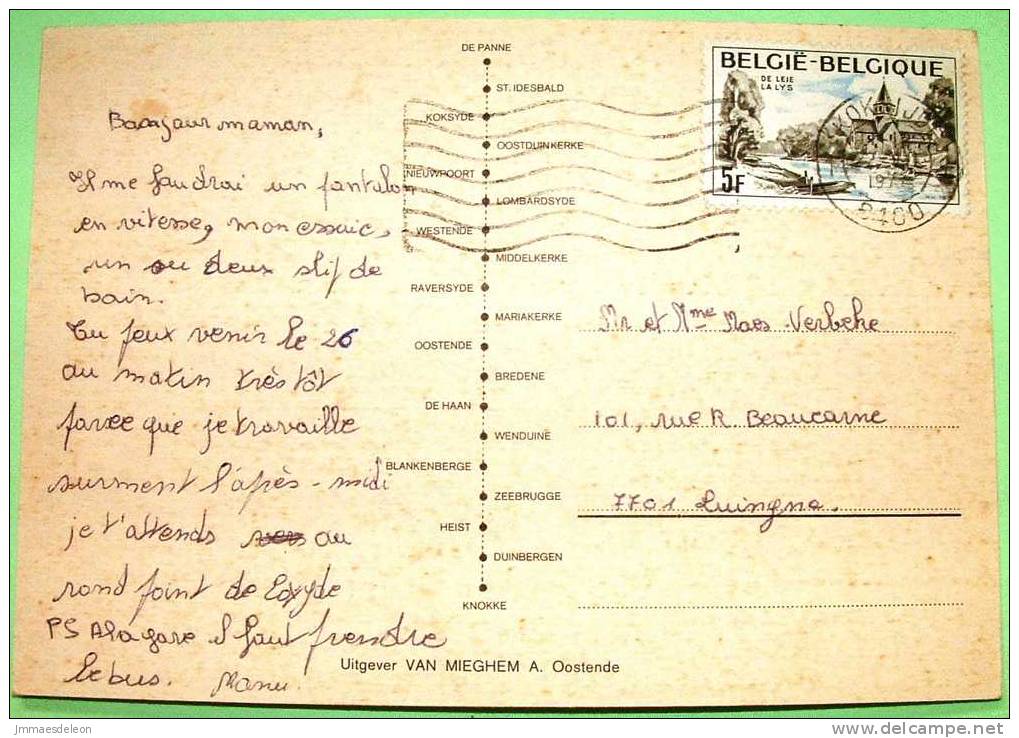 Bonjour maman,
Il me faudrai un pantalon
en vitesse, mon essuie,
un ou deux slip de
bain.
Tu peux venir le 26
au matin très tôt
parce que je travaille
surment l'après-midi
je t'attends vers au
rond point de Coxyde
PS A la gare il faut prendre
le bus. Manu.
DE PANNE
ST. IDESBALD
KOKSYDE
OOSTDUINKERKE
NIEUWPOORT
LOMBARDSYDE
WESTENDE
MIDDELKERKE
RAVERSYDE
MARIAKERKE
OOSTENDE
BREDENE
DE HAAN
WENDUINE
BLANKENBERGE
ZEEBRUGGE
HEIST
DUINBERGEN
KNOKKE
Uitgever VAN MIEGHEM A. Oostende
BELGIË-BELGIQUE
DE LEIE
LA LYS
5F
Mr et Mme Maes-Verbeke
101, rue R. Beaucarne
7701 Luingne.
jmmaesdeleon
delcampe.net